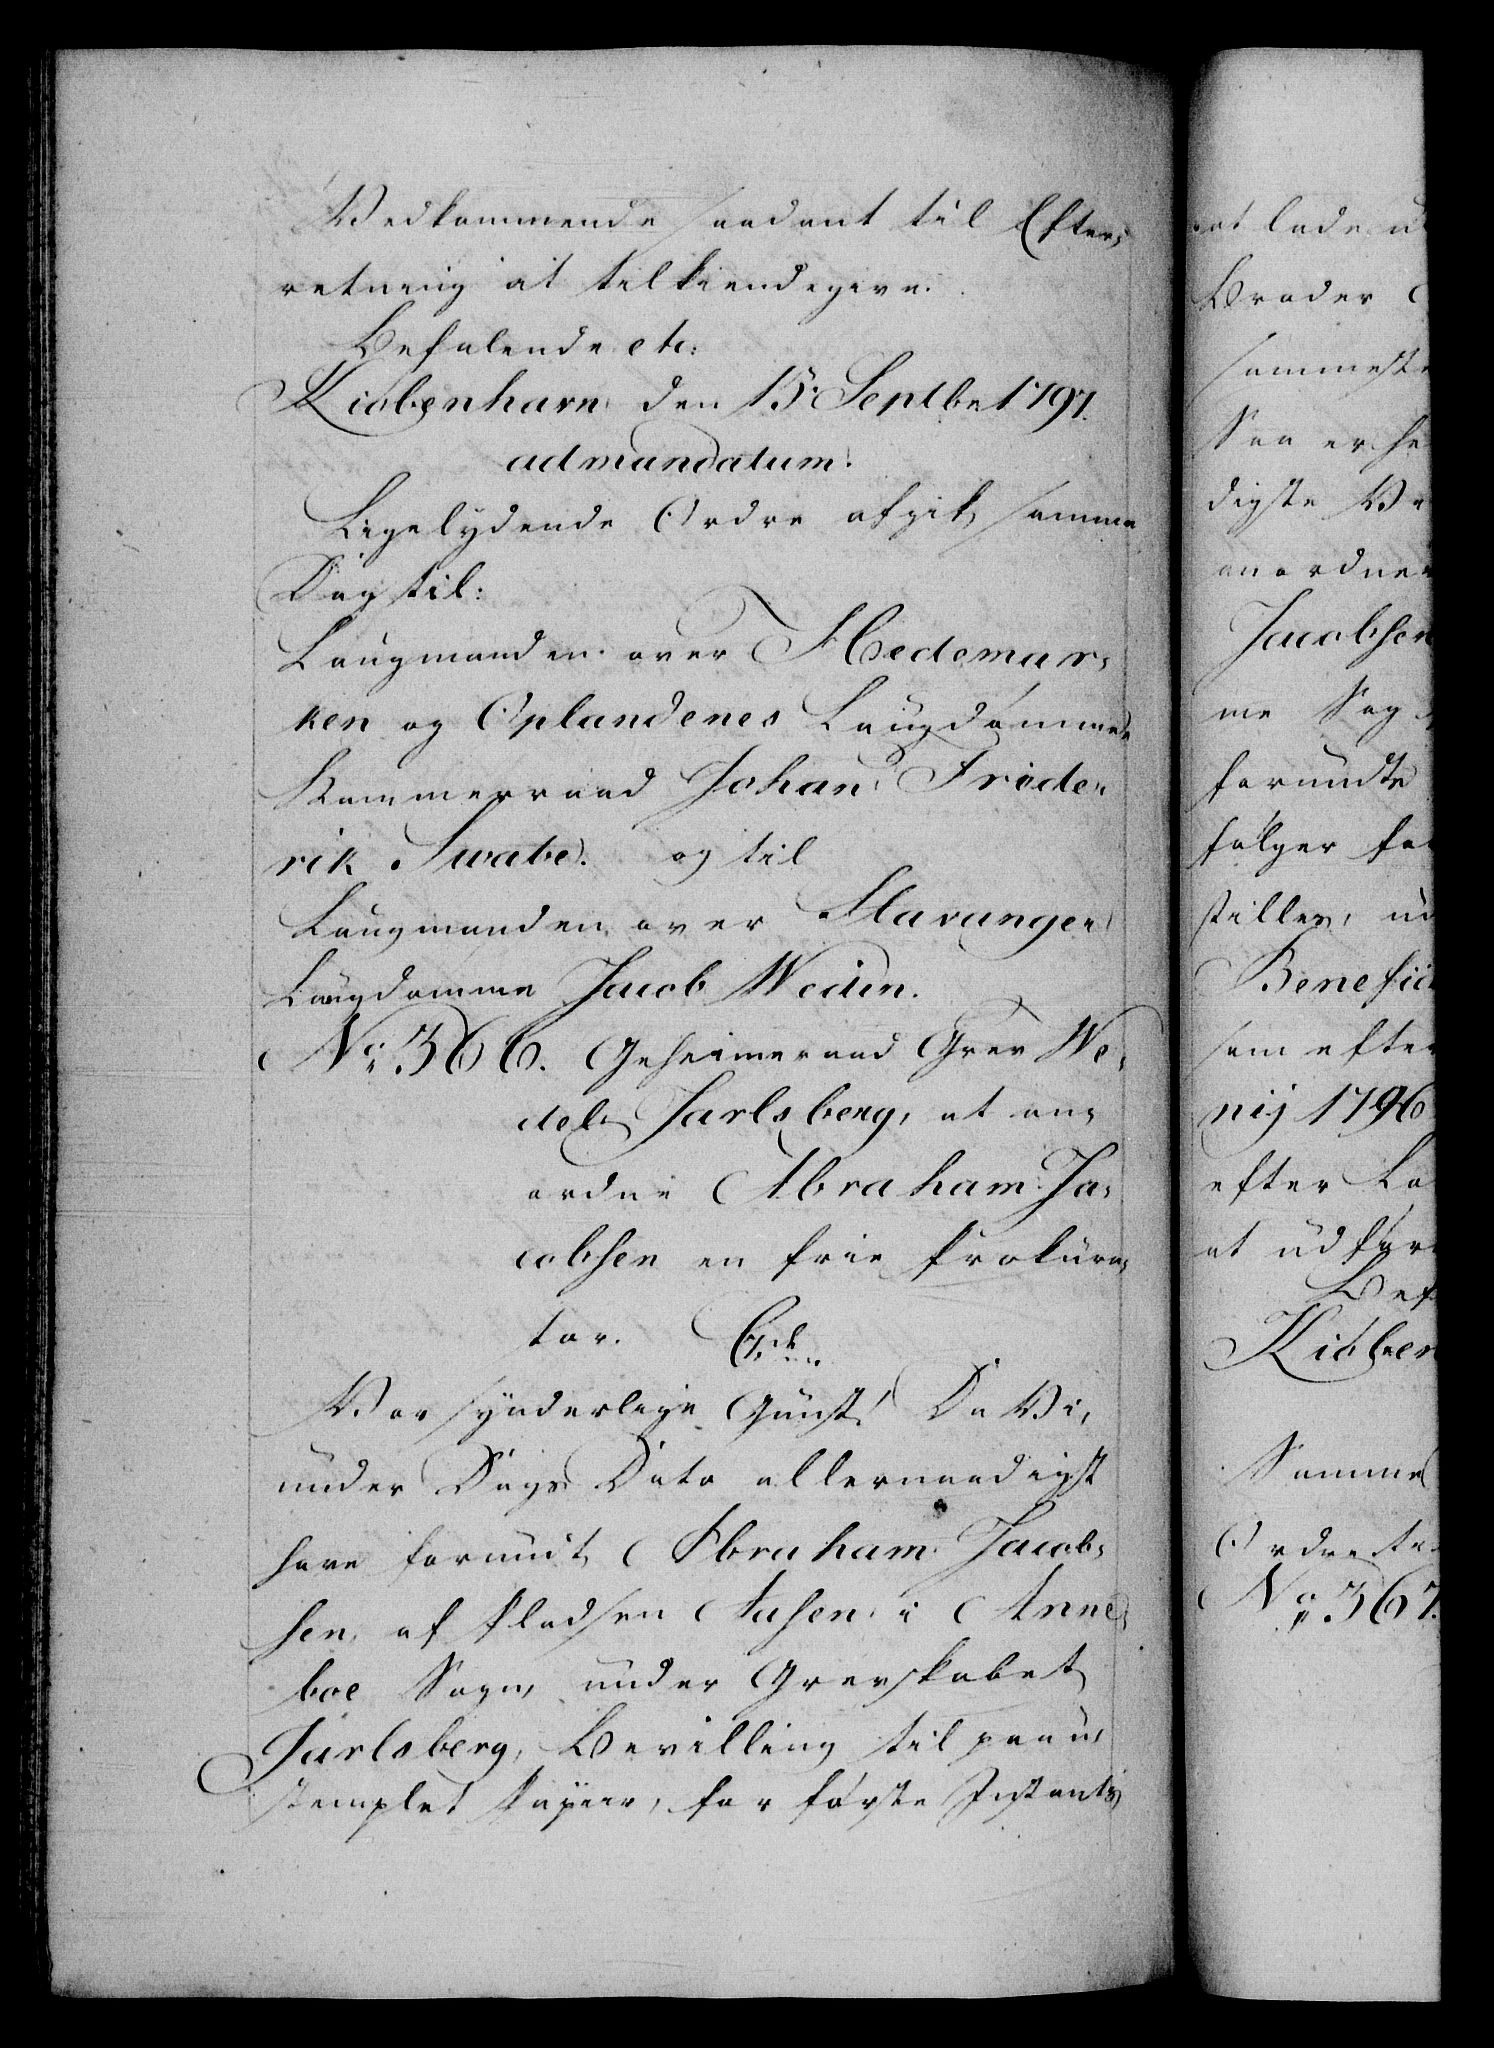 Vedkommende saadant til Efter,
retning at tilkiendegive.
Befalende etc:
Kiøbenhavn den 15 Septbr 1797.
ad mandatum.
Ligelydende Ordre afgik samme
Dag til:
Laugmanden over Hedemar,
ken og Oplandenes Laugdømme
Kammerraad Johan Fride,
rik Swabe. og til
Laugmanden over Stavanger
Laugdømme Jacob Wedin.
No 366. Geheimeraad Grev We,
del Jarlsberg, at an,
ordne Abraham Ja,
cobsen en frie Prokura,
tor.
Vor synderlige Gunst! Da Vi,
under Dags Dato allernaadigst
have forundt Abraham Jacob,
sen, af Pladsen Aasen i Anne,
boe Sogn, under Grevskabet
Jarlsberg, Bevilling til paa u,
stemplet Papiir, for første Instants
at lade u
Broder
sammeste
Saa er he
digste Ve
anordner
Jacobsen
me Sag
forundte
følger fo
stilles, ud
Benefici
som efter
nij 1796
efter Lo
at udføre
Bef
Kiøben
Samme
Ordre te
No 367.